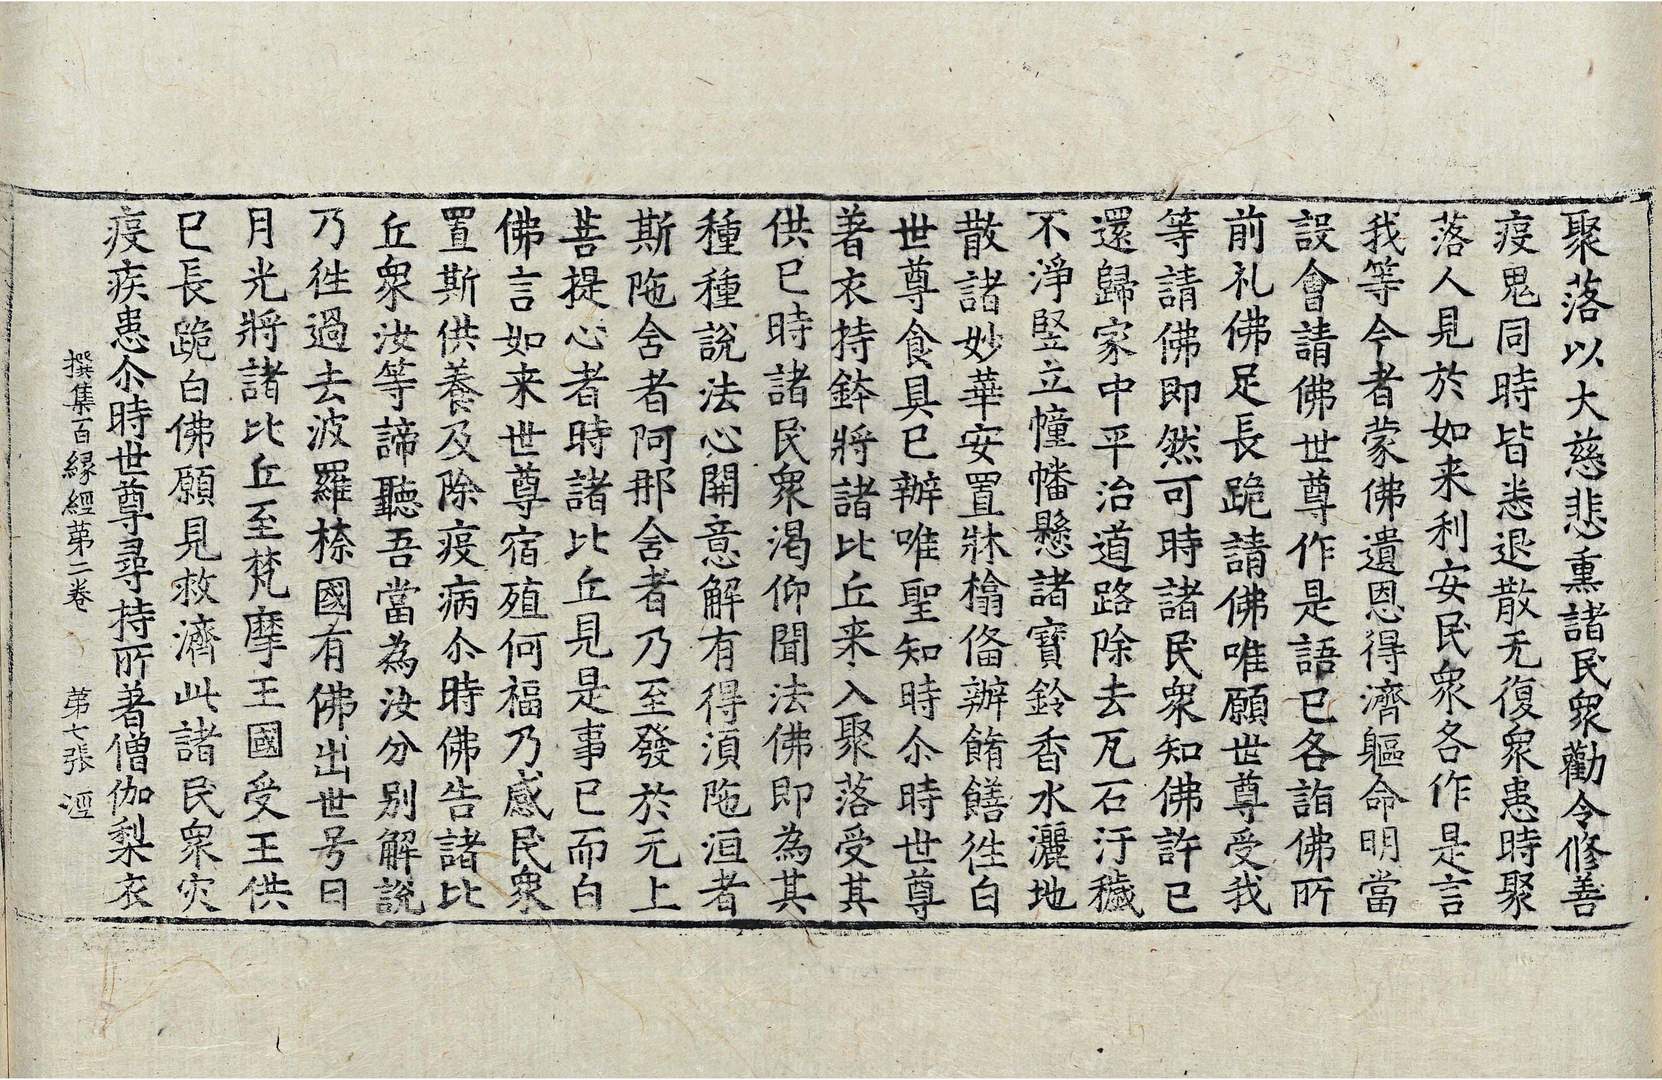 聚落以大慈悲熏諸民衆勸令修善
疫鬼同時皆悉退散无復衆患時聚
落人見於如来利安民衆各作是言
我等今者蒙佛遺恩得濟軀命明當
設會請佛世尊作是語已各詣佛所
前礼佛足長跪請佛唯願世尊受我
等請佛即然可時諸民衆知佛許已
還歸家中平治道路除去瓦石汙穢
不淨竪立幢幡懸諸寶鈴香水灑地
散諸妙華安置牀榻俻辦餚饍徃白
世尊食具已辦唯聖知時尒時世尊
著衣持鉢將諸比丘来入聚落受其
供已時諸民衆渴仰聞法佛即為其
種種說法心開意解有得湏陁洹者
斯陁含者阿那含者乃至發於无上
菩提心者時諸比丘見是事已而白
佛言如来世尊宿殖何福乃感民衆
置斯供養及除疫病尒時佛告諸比
丘衆汝等諦聽吾當為汝分別解說
乃徃過去波羅㮈國有佛出世号曰
月光將諸比丘至梵摩王國受王供
已長跪白佛願見救濟此諸民衆灾
疫疾患尒時世尊尋持所著僧伽梨衣
撰集百縁經第二卷 第七張 淫